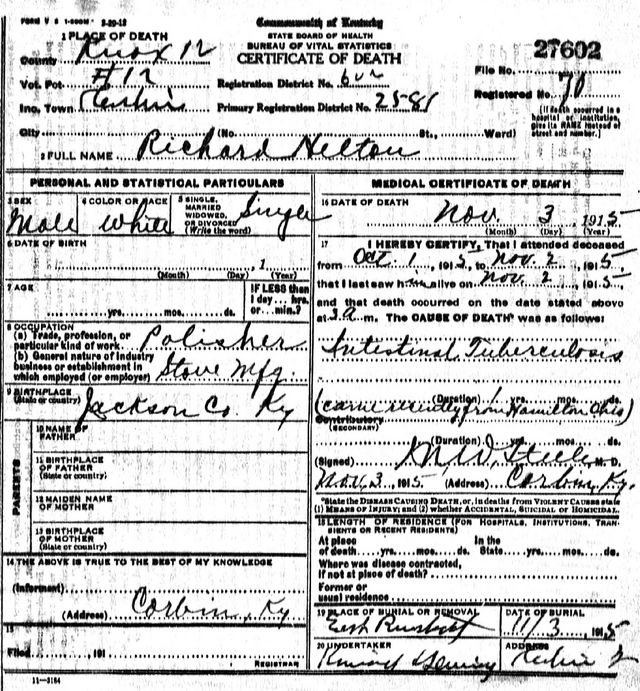 FORM V S 1-500M 3-20-13
Commonwealth of Kentucky
STATE BOARD OF HEALTH
BUREAU OF VITAL STATISTICS
CERTIFICATE OF DEATH
1 PLACE OF DEATH
County Knox 12
Vot. Pct. #12
Inc. Town
City
Registration District No.
Primary Registration District No. 2581
(No. St., Ward)
27602
File No.
Registered No. 70
(If death occurred in a hospital or institution, give its NAME instead of street and number.)
2 FULL NAME Richard Helton
PERSONAL AND STATISTICAL PARTICULARS
3 SEX Male
4 COLOR OR RACE White
5 SINGLE, MARRIED WIDOWED, OR DIVORCED (Write the word) Single
6 DATE OF BIRTH
(Month) (Day) , 1 (Year)
7 AGE
yrs. mos. ds.
IF LESS than 1 day.... hrs. or.... min.?
8 OCCUPATION
(a) Trade, profession, or particular kind of work Polisher
(b) General nature of industry
business or establishment in
which employed (or employer) Stove Mfg.
9 BIRTHPLACE
(State or country) Jackson Co. Ky
PARENTS
10 NAME OF FATHER
11 BIRTHPLACE OF FATHER
(State or country)
12 MAIDEN NAME OF MOTHER
13 BIRTHPLACE OF MOTHER
(State or country)
14 THE ABOVE IS TRUE TO THE BEST OF MY KNOWLEDGE
(Informant)
(Address) Corbin, Ky
15
Filed 191
REGISTRAR
11-3184
MEDICAL CERTIFICATE OF DEATH
16 DATE OF DEATH
Nov. 3 1915
(Month) (Day) (Year)
17 I HEREBY CERTIFY, That I attended deceased
from Oct. 1, 1915, to Nov. 2, 1915
that I last saw him alive on Nov. 2, 1915
and that death occurred on the date stated above
at 3 a m. The CAUSE OF DEATH* was as follows:
Intestinal Tuberculosis
(Duration) 1 yrs. mos. ds.
(came recently from Hamilton Ohio)
Contributory
(SECONDARY)
(Duration) yrs. mos. ds.
(Signed) Steele M. D.
Nov. 3, 1915 (Address) Corbin, Ky.
*State the DISEASE CAUSING DEATH, or, in deaths from VIOLENT CAUSES state
(1) MEANS OF INJURY; and (2) whether ACCIDENTAL, SUICIDAL OR HOMICIDAL.
18 LENGTH OF RESIDENCE (FOR HOSPITALS, INSTITUTIONS, TRANSIENTS OR RECENT RESIDENTS)
At place In the
of death yrs. mos. ds. State yrs. mos. ds.
Where was disease contracted,
If not at place of death?
Former or
usual residence
19 PLACE OF BURIAL OR REMOVAL
DATE OF BURIAL
11/3, 1915
20 UNDERTAKER
ADDRESS